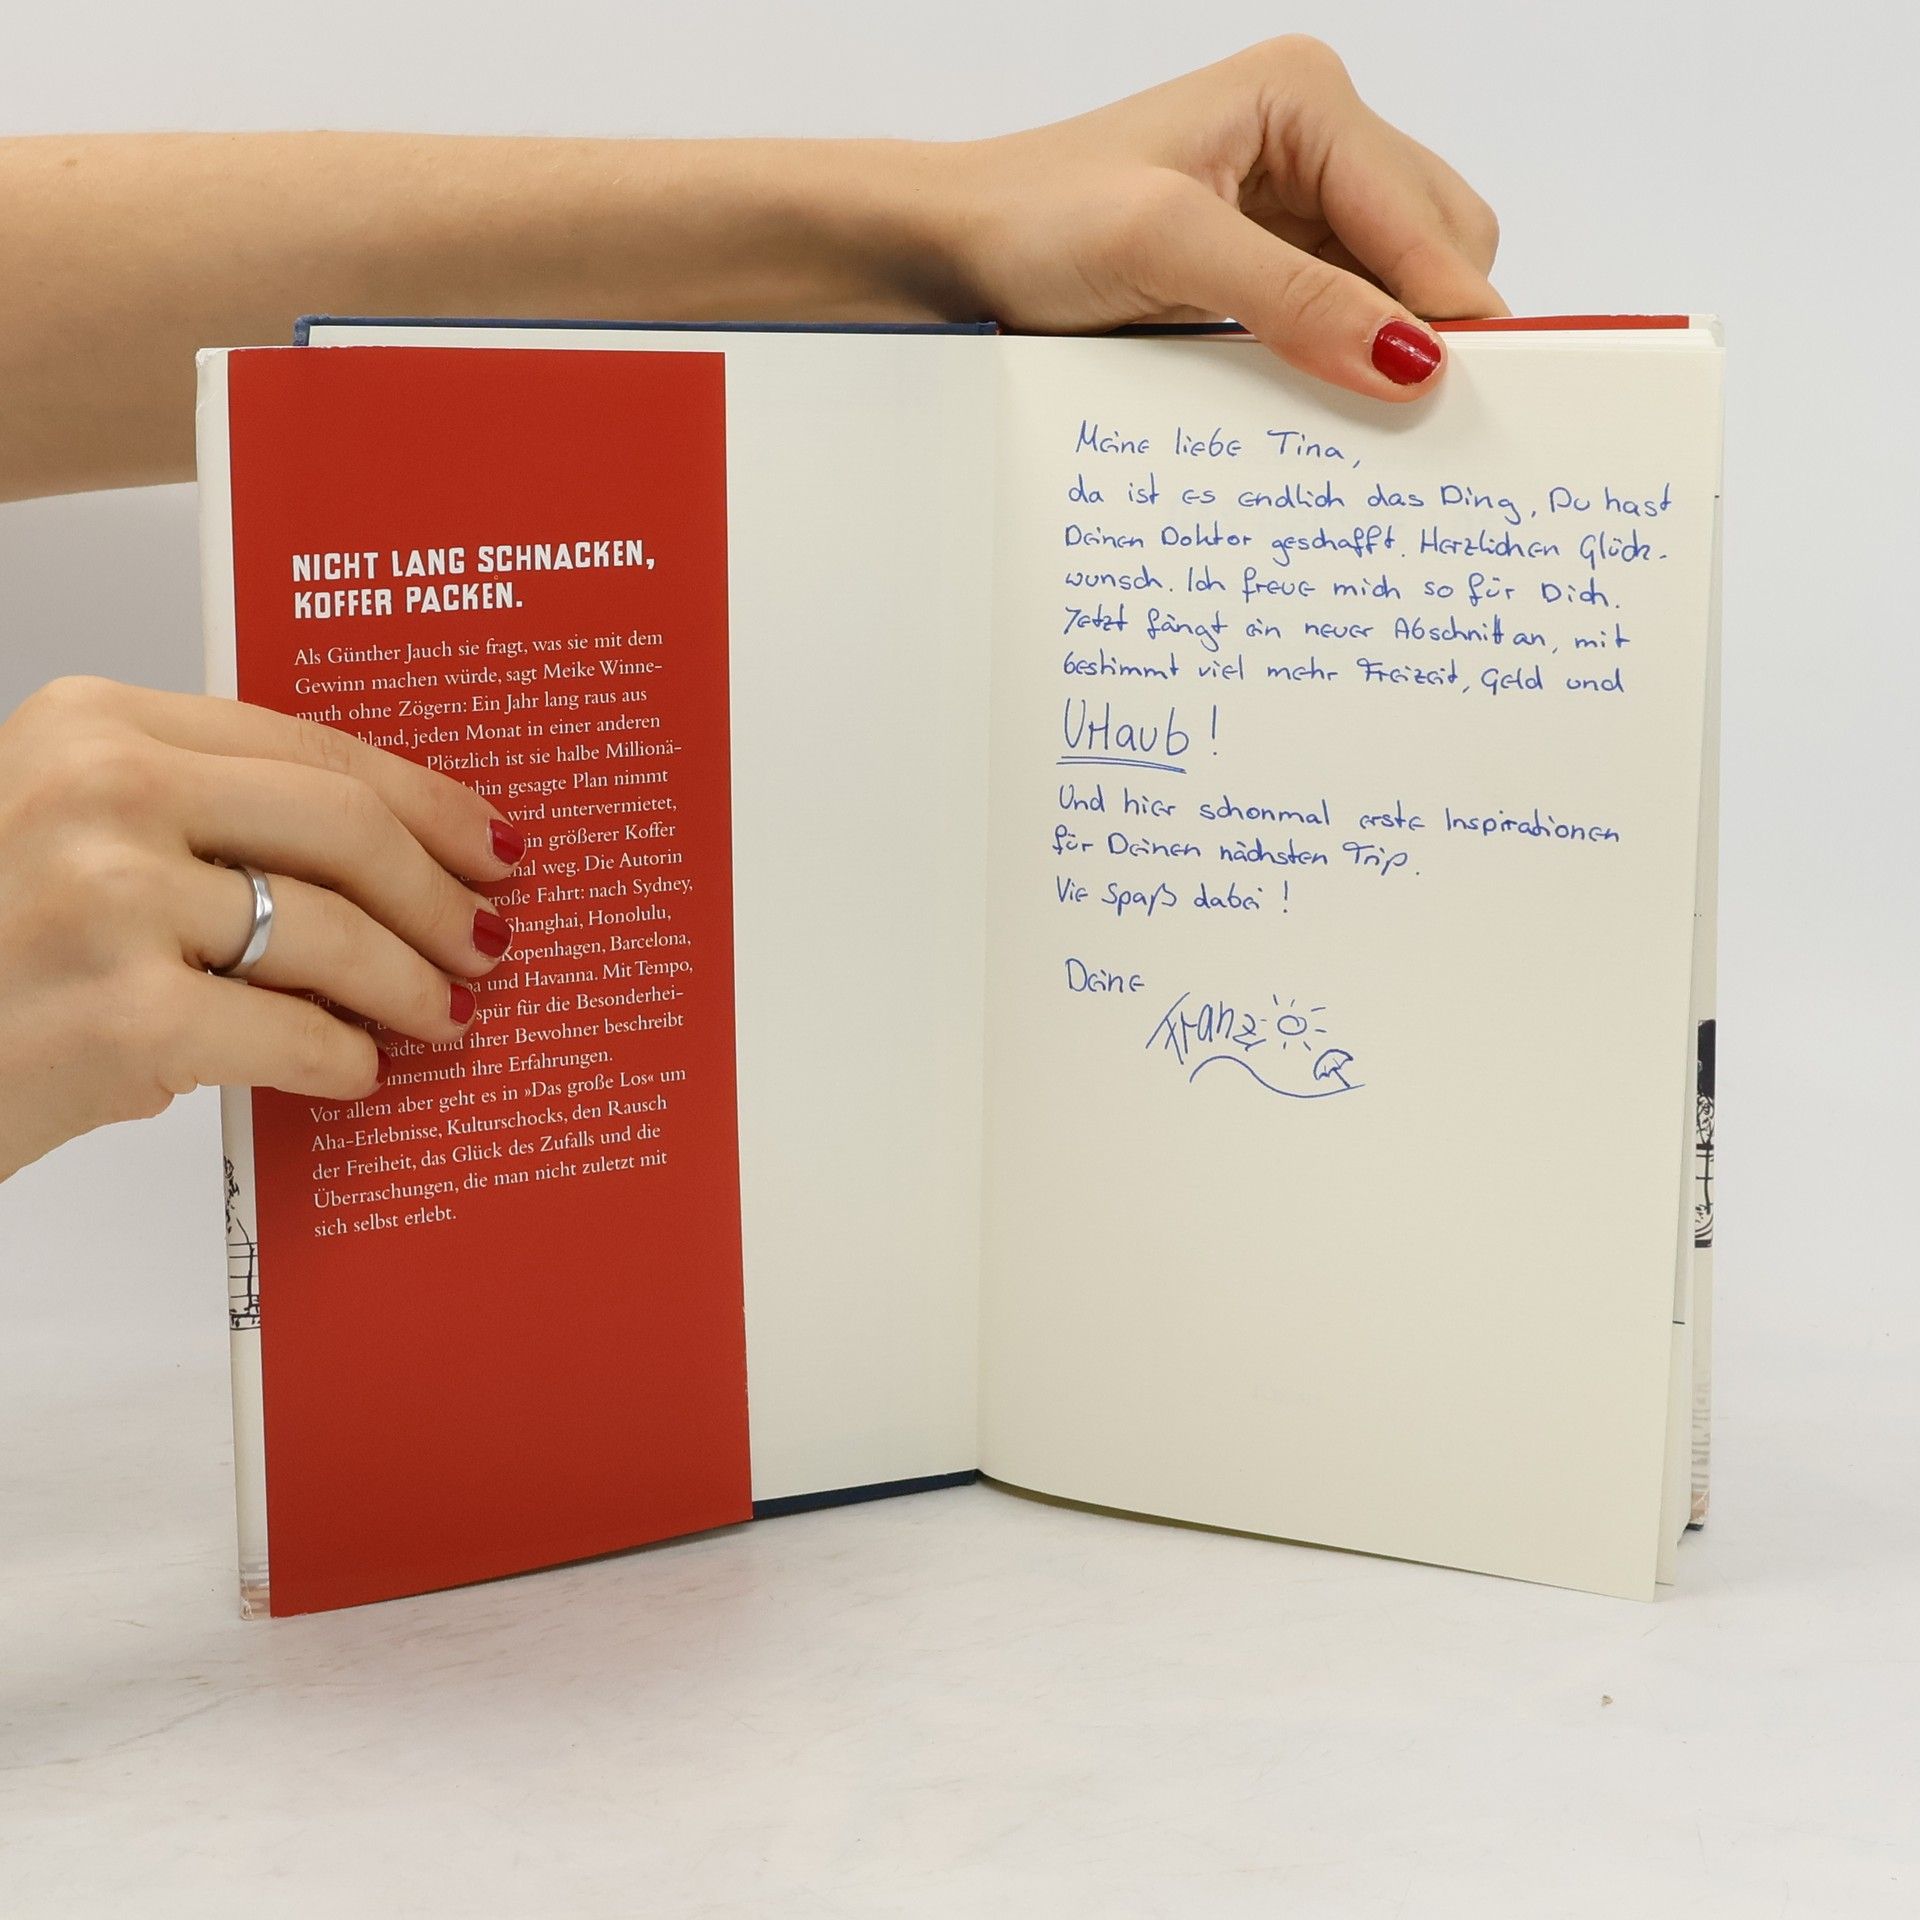 NICHT LANG SCHNACKEN,
KOFFER PACKEN.
Als Günther Jauch sie fragt, was sie mit dem
Gewinn machen würde, sagt Meike Winne-
muth ohne Zögern: Ein Jahr lang raus aus
hland, jeden Monat in einer anderen
Plötzlich ist sie halbe Millionä-
hin gesagte Plan nimmt
wird untervermietet,
ein größerer Koffer
mal weg. Die Autorin
große Fahrt: nach Sydney,
Shanghai, Honolulu,
Kopenhagen, Barcelona,
und Havanna. Mit Tempo,
spür für die Besonderhei-
ädte und ihrer Bewohner beschreibt
innemuth ihre Erfahrungen.
Vor allem aber geht es in »Das große Los« um
Aha-Erlebnisse, Kulturschocks, den Rausch
der Freiheit, das Glück des Zufalls und die
Überraschungen, die man nicht zuletzt mit
sich selbst erlebt.
Meine liebe Tina,
da ist es endlich das Ding, Du hast
Deinen Doktor geschafft. Herzlichen Glück-
wunsch. Ich freue mich so für Dich.
Jetzt fängt ein neuer Abschnitt an, mit
bestimmt viel mehr Freizeit, Geld und
Urlaub!
Und hier schonmal erste Inspirationen
für Deinen nächsten Trip.
Vie Spaß dabei!
Deine
Franzi